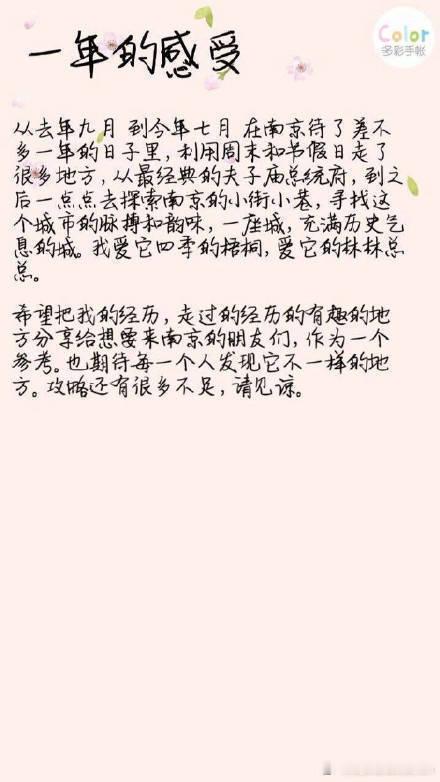 Color
多彩手帐
一年的感受
从去年九月 到今年七月 在南京待了差不
多一年的日子里，利用周末和节假日走了
很多地方，从最经典的夫子庙总统府，到之
后一点点去探索南京的小街小巷，寻找这
个城市的脉搏和韵味，一座城，充满历史气
息的城。我爱它四季的梧桐，爱它的林林总
总。
希望把我的经历，走过的经历的有趣的地
方分享给想要来南京的朋友们，作为一个
参考。也期待每一个人发现它不一样的地
方。攻略还有很多不足，请见谅。